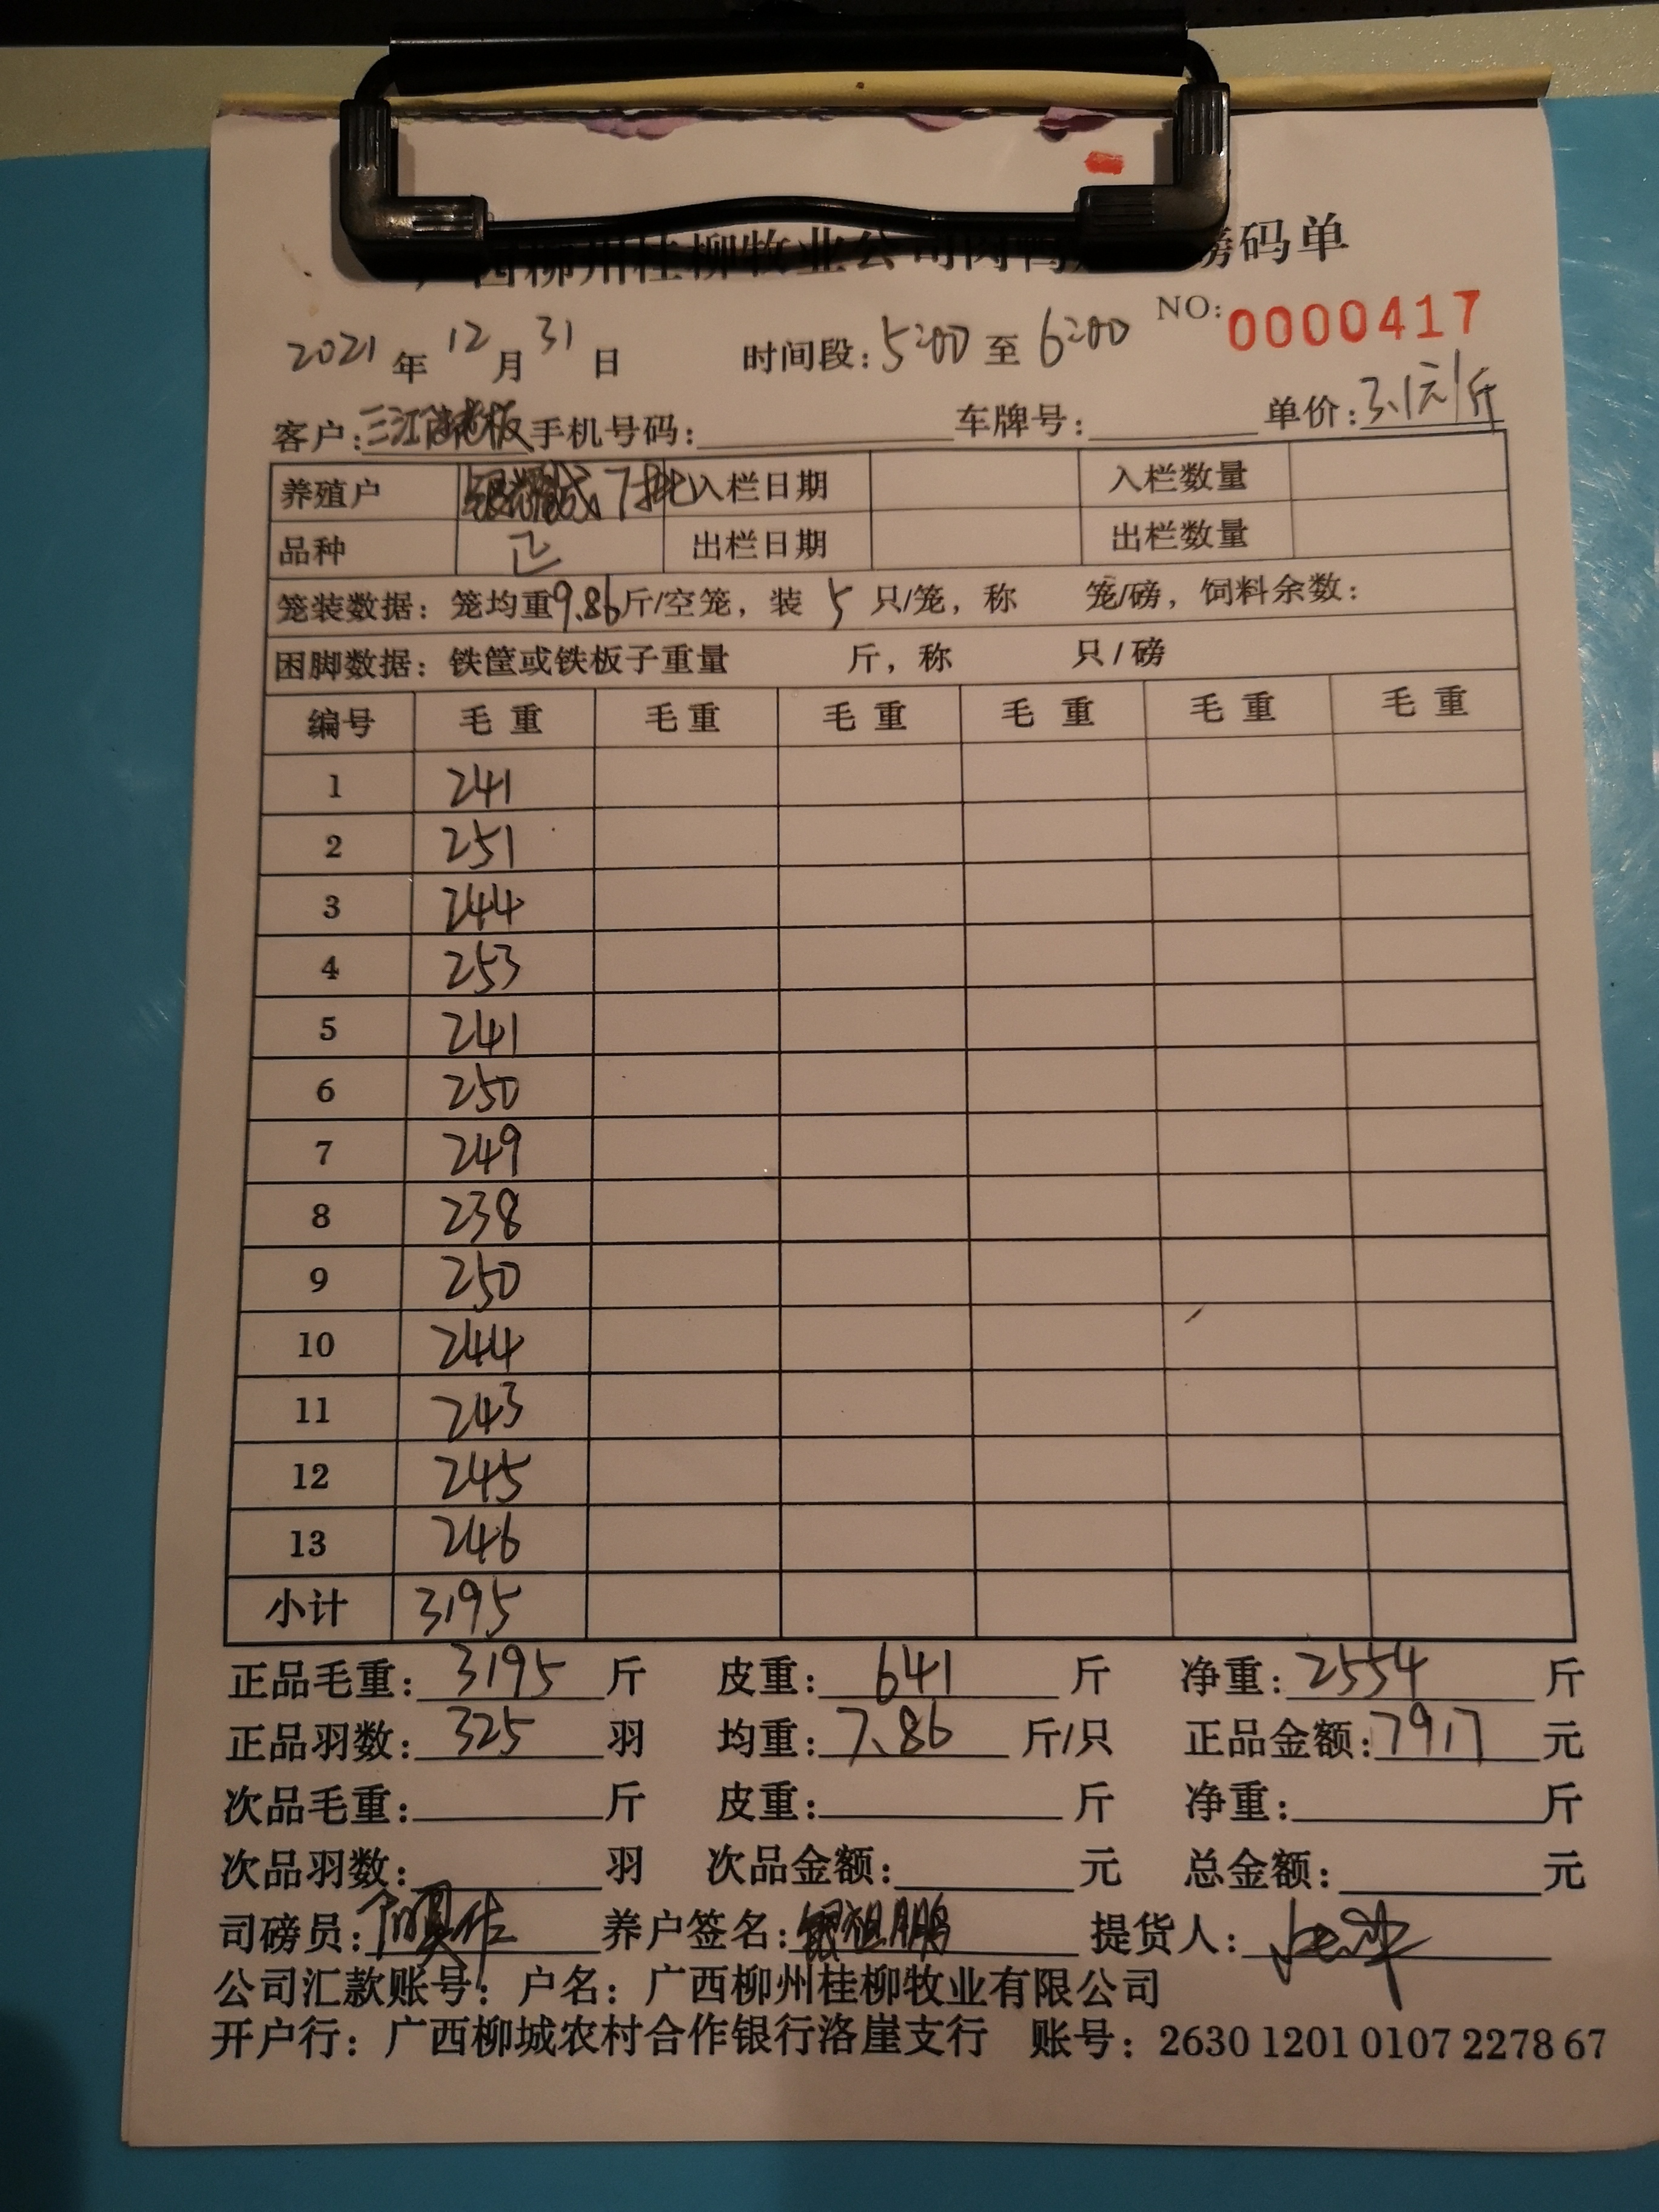 广西柳州桂柳牧业公司肉鸭 磅码单
NO: 0000417
2021年12月31日 时间段:5:00至6:00
客户:三江 老板 手机号码: 车牌号: 单价:3.1元/斤
养殖户 7批 入栏日期 入栏数量
品种 正 出栏日期 出栏数量
笼装数据:笼均重9.86斤/空笼,装 5 只/笼,称 笼/磅,饲料余数:
困脚数据:铁筐或铁板子重量 斤,称 只/磅
编号 毛重 毛重 毛重 毛重 毛重 毛重
1 241
2 251
3 244
4 253
5 241
6 250
7 249
8 238
9 250
10 244
11 243
12 245
13 246
小计 3195
正品毛重:3195斤 皮重:641斤 净重:2554斤
正品羽数:325羽 均重:7.86斤/只 正品金额:7917元
次品毛重: 斤 皮重: 斤 净重: 斤
次品羽数: 羽 次品金额: 元 总金额: 元
司磅员: 养户签名:银祖鹏 提货人:
公司汇款账号:户名:广西柳州桂柳牧业有限公司
开户行:广西柳城农村合作银行洛崖支行 账号:2630 1201 0107 2278 67